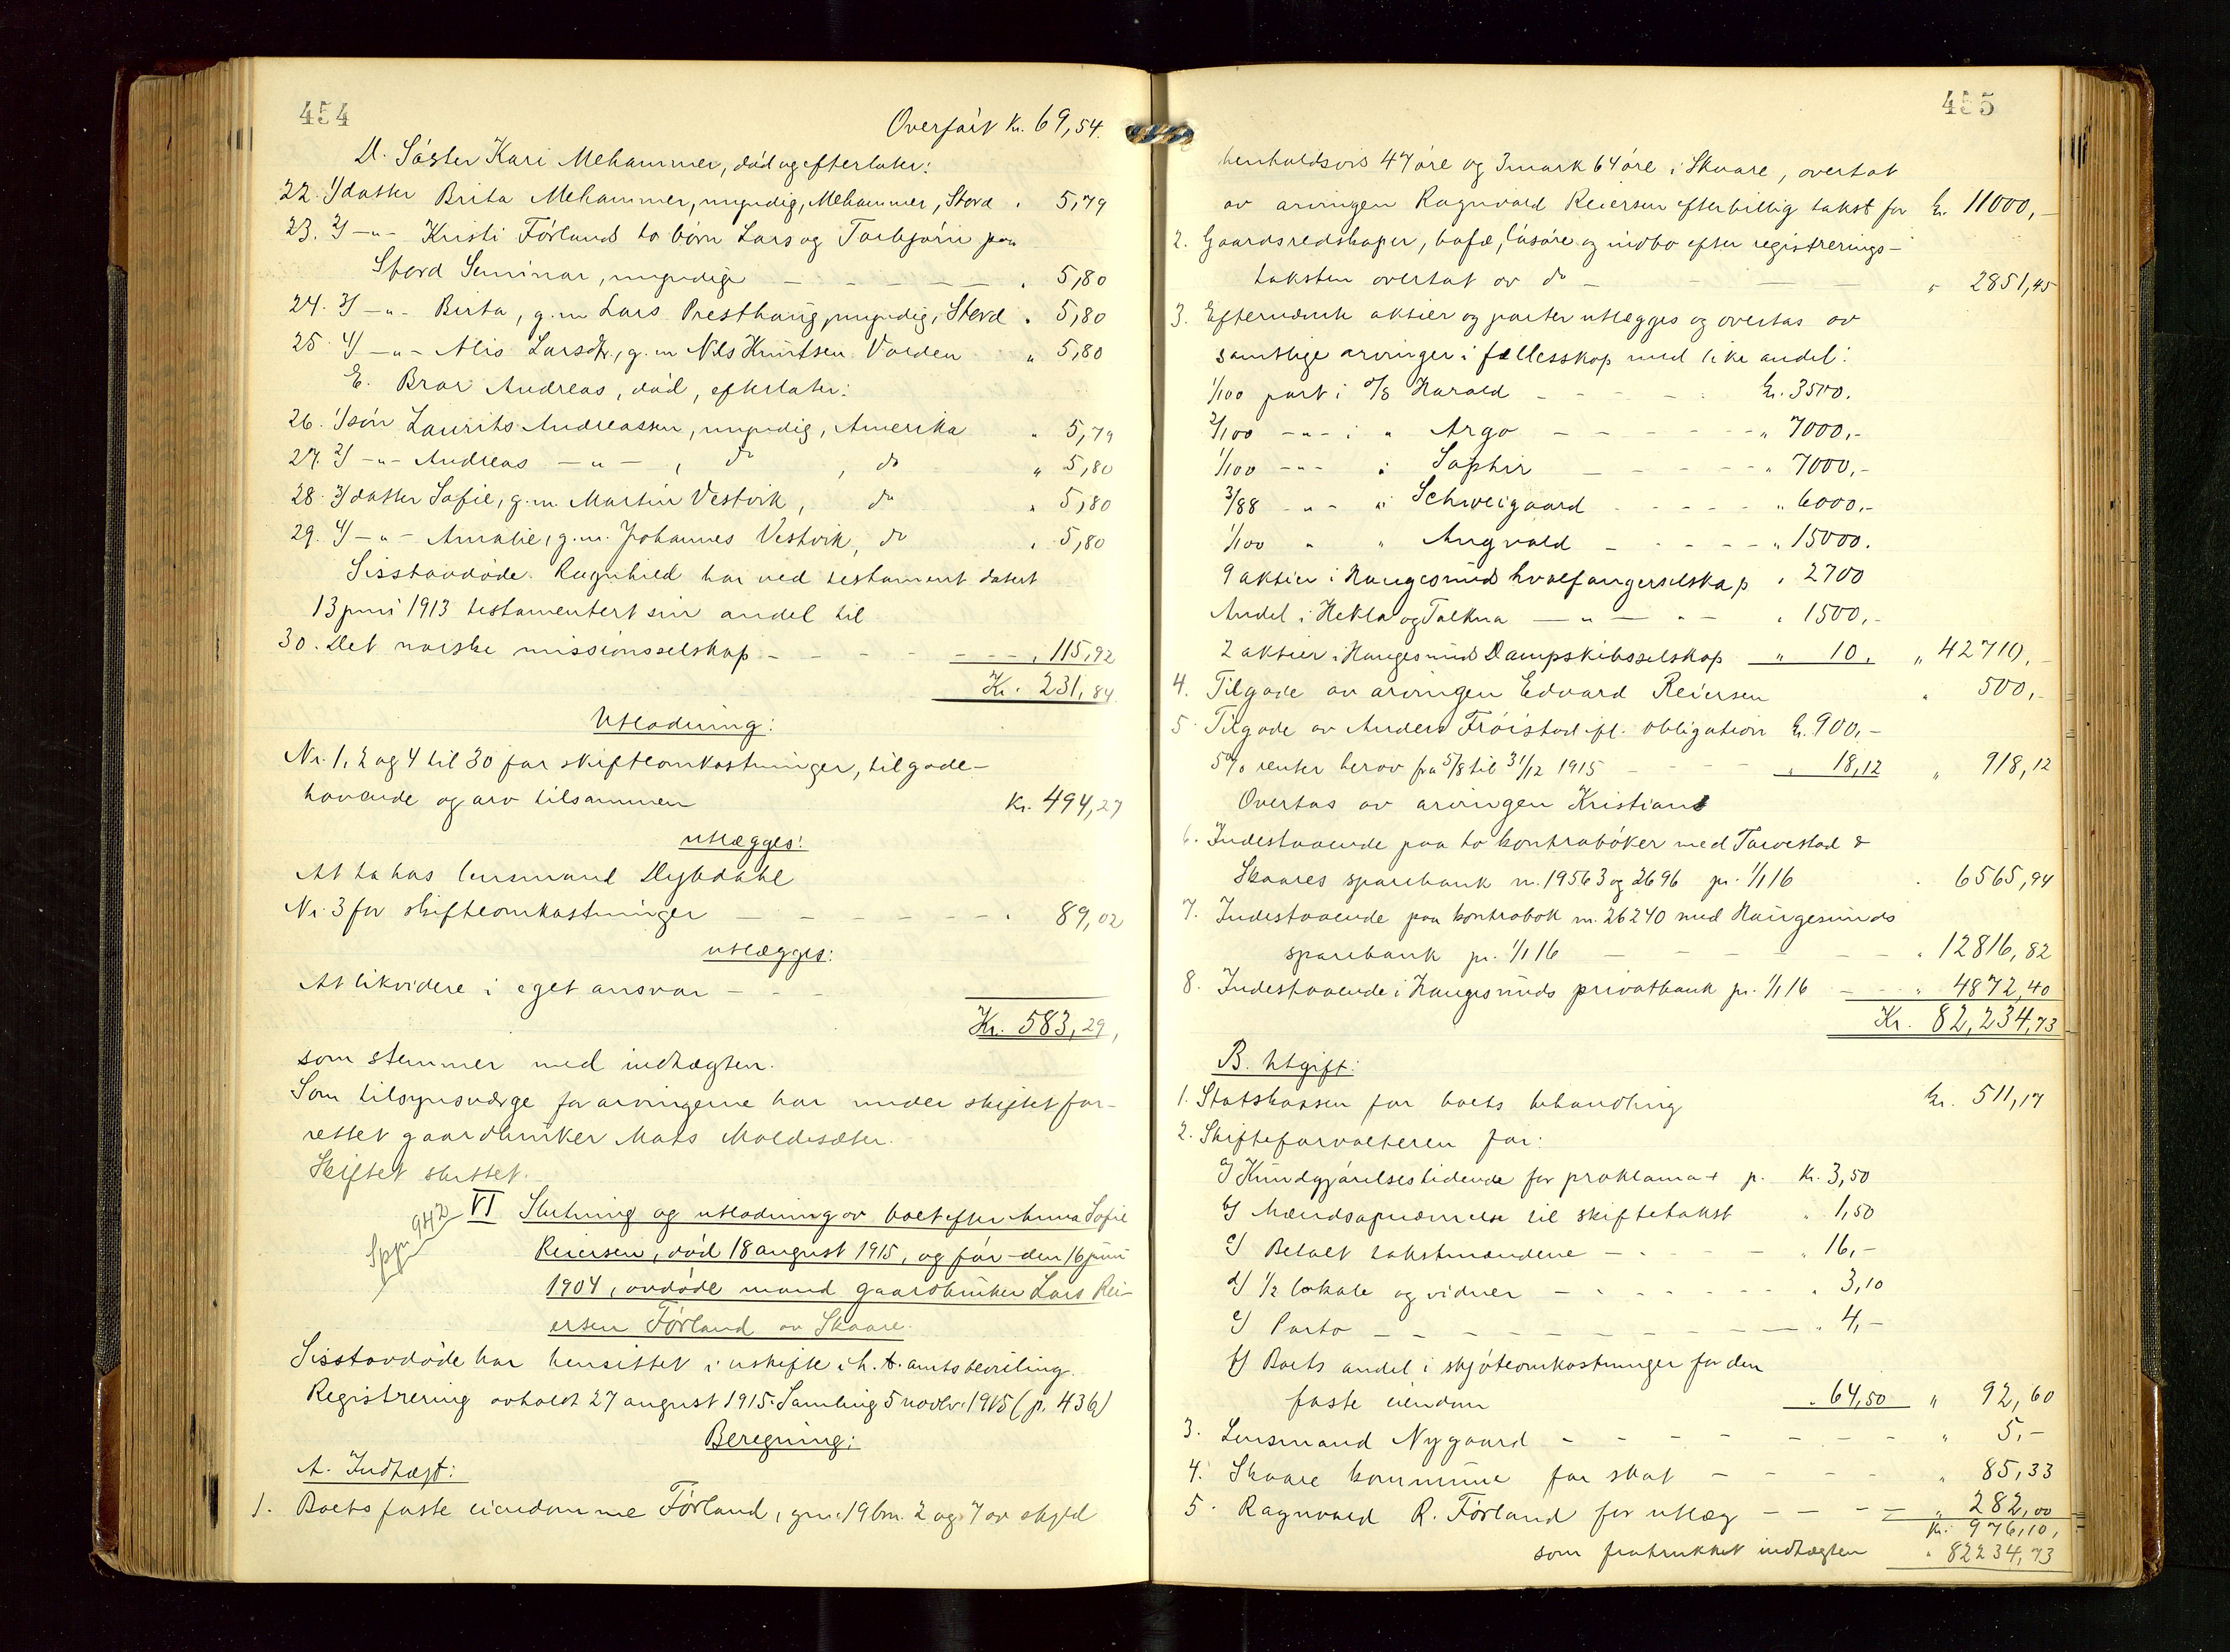 454
Overført Kr. 69,54.
D. Søster Kari Mehammer, død og efterlater:
22. 1/ datter Brita Mehammer, myndig, Mehammer, Stord " 5,79
23. 2/ -"- Kristi Førlands to børn Lars og Torbjørn paa
Stord Seminar, myndige - - - - - " 5,80
24. 3/ -"- Berta, g.m. Lars Presthaug, myndig, Stord " 5,80
25. 4/ -"- Alis Larsdtr., g.m. Nils Knutsen Valden " 5,80
E. Bror Andreas, død, efterlater:
26. 1/ søn Laurits Andreassen, myndig, Amerika " 5,79
27. 2/ -"- Andreas -"- , do , do " 5,80
28. 3/ datter Sofie, g.m. Martin Vestvik, do " 5,80
29. 4/ -"- Amalie, g.m. Johannes Vestvik, do " 5,80
Sisstavdøde Ragnhild har ved testament datert
13 juni 1913 testamentert sin andel til
30. Det norske missionsselskap - - - - - - " 115,92
Kr. 231,84
Utlodning:
Nr. 1, 2 og 4 til 30 for skifteomkostninger, tilgode-
havende og arv tilsammen Kr. 494,27
utlægges:
At ta hos lensmand Dybdahl
Nr. 3 for skifteomkostninger - - - - - - - " 89,02
utlægges:
At likvidere i eget ansvar - - -
Kr. 583,29,
som stemmer med indtægten.
Som tilsynsværge for arvingerne har under skiftet for-
rettet gaardbruker Mats Moldesæter.
Skiftet sluttet.
942
VI Slutning og utlodning av boet efter Anna Sofie
Reiersen, død 18 august 1915, og før - den 16 juni
1904, avdøde mand gaardbruker Lars Rei-
ersen Førland av Skaare.
Sisstavdøde har hensittet i uskifte i h. t. amtsbevilling.
Registrering avholdt 27 august 1915. Samling 5 novbr. 1915 (p. 436)
Beregning:
A. Indtægt:
1. Boets faste eiendomme Førland, gnr. 19 brn. 2 og 7 av skyld
455
henholdsvis 47 øre og 3 mark 64 øre i Skaare, overtat
av arvingen Ragnvald Reiersen efter billig takst for Kr. 11000,-
2. Gaardsredskaper, bufæ, løsøre og indbo efter registrerings-
taksten overtat av do - - - " 2851,45
3. Efternævnte aktier og parter utlægges og overtas av
samtlige arvinger i fællesskap med like andel:
1/100 part i D/S Harald - - - - - Kr. 3500.
2/100 -"- i " Argo - - - - - " 7000,-
1/100 -"- " Saphir - - - - - " 7000,-
3/88 -"- " Schweigaard - - - - - " 6000,-
1/100 " " Angvald - - - - - " 15000.
9 aktier i Haugesunds hvalfangerselskap " 2700
Andel i Hekla og Talkna -"- "- " 1500,-
2 aktier i Haugesunds Dampskibsselskap " 10, " 42710,-
4. Tilgode av arvingen Edvard Reiersen " 500,-
5. Tilgode av Anders Frøistad ifl. obligation Kr. 900,-
5% renter herav fra 5/8 til 31/12 1915 - - - " 18,12 " 918,12
Overtas av arvingen Kristian
6. Indestaaende paa to kontrabøker med Torvestad &
Skaares sparebank nr. 19563 og 2696 pr. 1/1 16 " 6565,94
7. Indestaaende paa kontrabok nr. 26240 med Haugesunds
sparebank pr. 1/1 16 - - - - - - " 12816,82
8. Indestaaende i Haugesunds privatbank pr. 1/1 16 - - " 4872,40
Kr. 82,234,73
B. Utgift:
1. Statskassen for boets behandling Kr. 511,17
2. Skifteforvalteren for:
a/ Kundgjørelsestidende for proklama+ p. Kr. 3,50
b/ Mændsopnævnelse til skiftetakst " 1,50
c/ Betalt takstmændene - - - - - " 16,-
d/ 1/2 lokale og vidner - - - - - " 3,10
e/ Porto - - - - - - - - " 4,-
f/ Boets andel i skjøteomkostninger for den
faste eiendom " 64,50 " 92,60
3. Lensmand Nygaard - - - - - - - " 5,-
4. Skaare kommune for skat - - - - " 85,33
5. Ragnvald R. Førland for utlæg - - - - " 282,00
Kr. 976,10,
som fratrukket indtægten " 82234,73